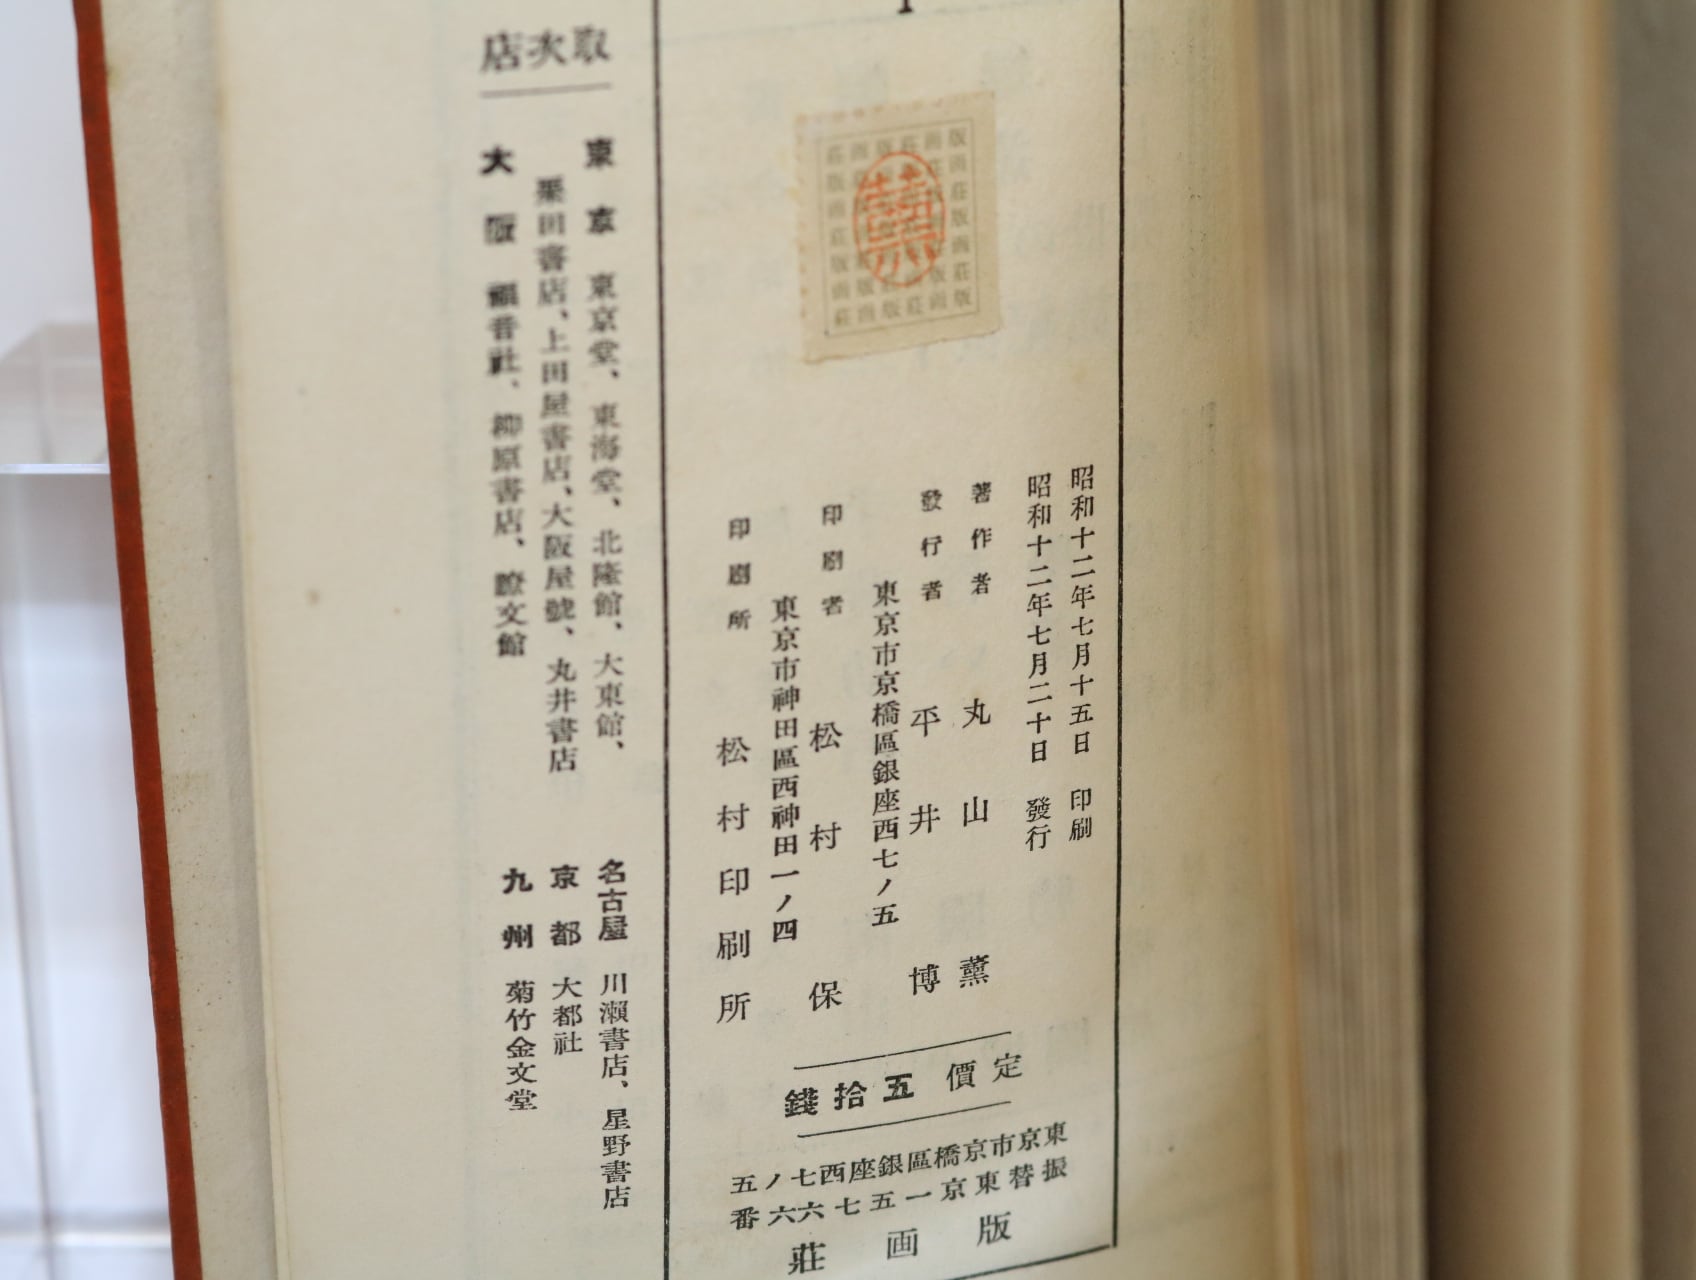 昭和十二年七月十五日 印刷
昭和十二年七月二十日 發行
著作者 丸山薫
發行者 平井博
東京市京橋區銀座西七ノ五
印刷者 松村保
東京市神田區西神田一ノ四
印刷所 松村印刷所
定價 五拾錢
東京市京橋區銀座西七ノ五
振替東京一五七六六番
版画莊
取次店
東京 東京堂、東海堂、北隆館、大東館、
栗田書店、上田屋書店、大阪屋號、丸井書店
大阪 福音社、柳原書店、瞭文館
名古屋 川瀬書店、星野書店
京都 大都社
九州 菊竹金文堂